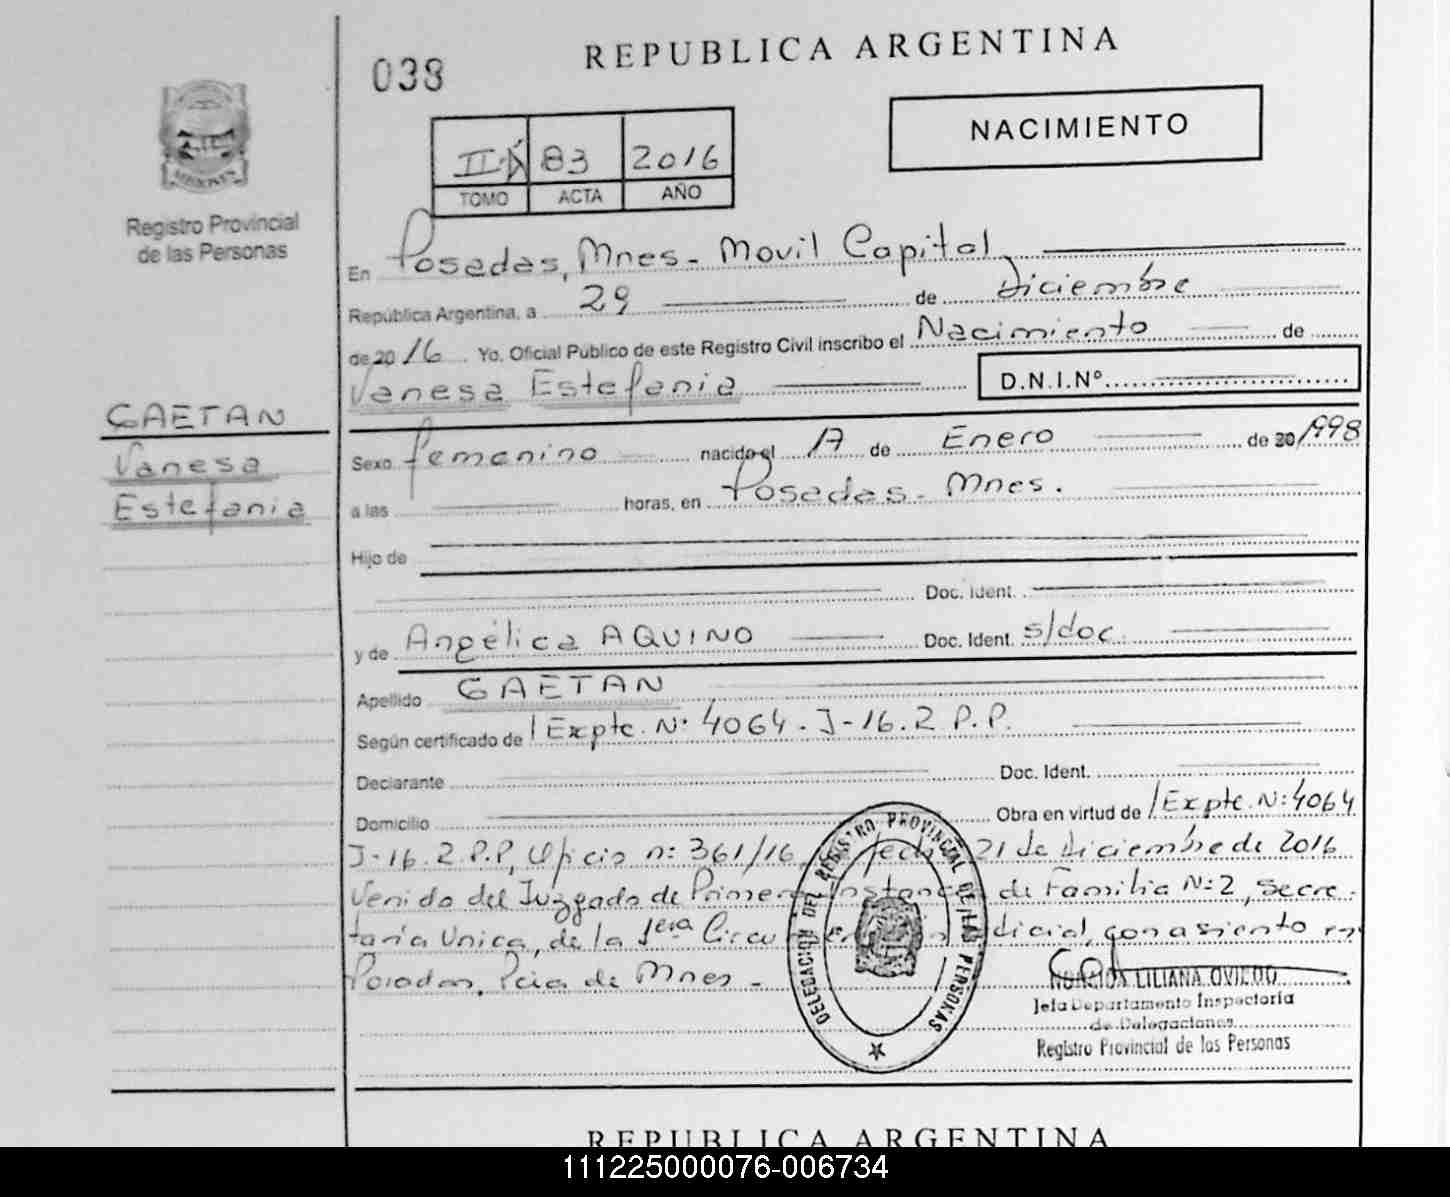 REPUBLICA ARGENTINA
038
NACIMIENTO
II 83 2016
TOMO ACTA AÑO
MISIONES
Registro Provincial
de las Personas
En Posadas, Mnes - Movil Capital
República Argentina, a 29 de Diciembre
de 2016. Yo, Oficial Público de este Registro Civil inscribo el Nacimiento de
Vanesa Estefania D.N.I.Nº
GAETAN
Vanesa
Estefania
Sexo femenino nacido el 17 de Enero de 20 1998
a las horas, en Posadas - Mnes.
Hijo de
Doc. Ident.
y de Angélica AQUINO Doc. Ident. s/doc.
Apellido GAETAN
Según certificado de / Expte. Nº 4064 - J - 16. 2 P.P.
Declarante Doc. Ident.
Domicilio Obra en virtud de / Expte. Nº 4064
J-16. 2 P.P, Oficio nº 361/16, fecha 21 de Diciembre de 2016
Venido del Juzgado de Primera Instancia de Familia Nº 2, Secre-
taría Unica, de la 1era Circu dicial, con asiento en
Posadas, Pcia de Mnes -
DELEGACION DEL REGISTRO PROVINCIAL DE LAS PERSONAS
LILIANA OVIEDO
Jefa Departamento Inspectoria
de Delegaciones
Registro Provincial de las Personas
REPUBLICA ARGENTINA
111225000076-006734